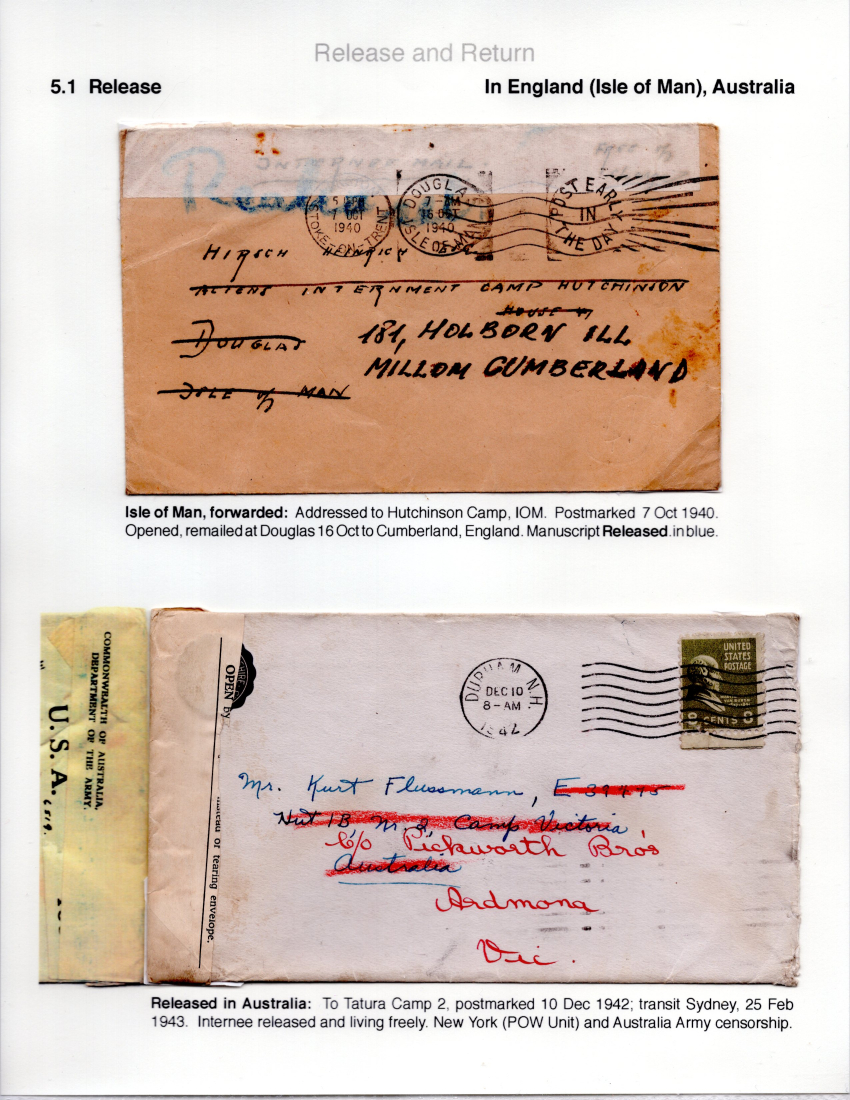 Release and Return
5.1 Release
In England (Isle of Man), Australia
INTERNEE MAIL.
STOKE-ON-TRENT
7 OCT
1940
DOUGLAS
16 OCT
1940
ISLE OF MAN
POST EARLY
IN
THE DAY
HIRSCH HEINRICH
ALIENS INTERNMENT CAMP HUTCHINSON
HOUSE
DOUGLAS
181, HOLBORN ILL
MILLOM CUMBERLAND
ISLE of MAN
Isle of Man, forwarded: Addressed to Hutchinson Camp, IOM. Postmarked 7 Oct 1940.
Opened, remailed at Douglas 16 Oct to Cumberland, England. Manuscript Released in blue.
COMMONWEALTH OF AUSTRALIA,
DEPARTMENT OF THE ARMY.
U. S. A.
OPEN by
or tearing envelope.
DURHAM N.H.
DEC 10
8-AM
1942
UNITED
STATES
POSTAGE
8 CENTS 8
Mr. Kurt Flussmann, E 39475
Hut 1B, No. 2, Camp Victoria
c/o Pickworth Bro's
Australia
Ardmona
Vic.
Released in Australia: To Tatura Camp 2, postmarked 10 Dec 1942; transit Sydney, 25 Feb
1943. Internee released and living freely. New York (POW Unit) and Australia Army censorship.